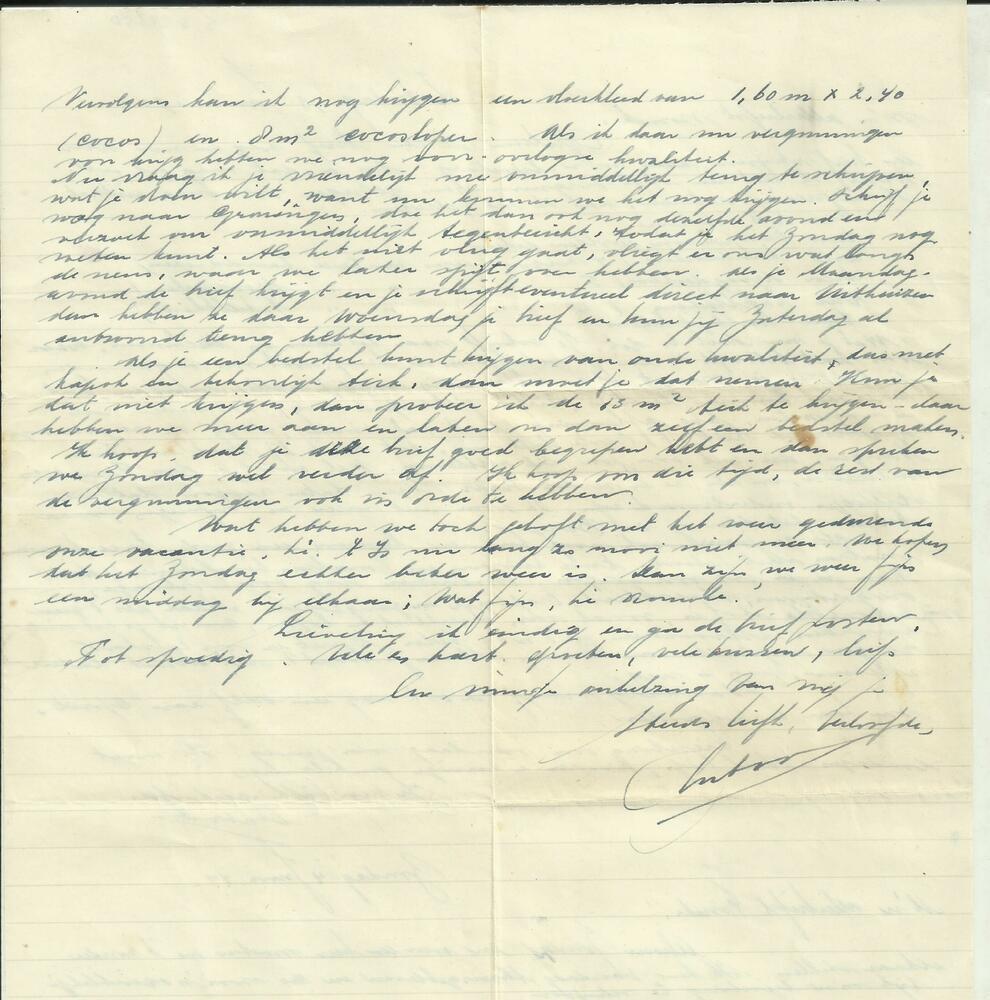 Vervolgens kan ik nog krijgen een vloerkleed van 1,60 m x 2,40
(cocos) en 8 m² cocosloper. Als ik daar nu vergunningen
voor krijg hebben we nog voor-oorlogse kwaliteit.
Nu vraag ik je vriendelijk me onmiddellijk terug te schrijven,
wat je doen wilt, want nu kunnen we het nog krijgen. Schrijf je
nog naar Groningen, doe het dan ook nog dezelfde avond en
verzoek om onmiddellijk tegenbericht, zodat je het Zondag nog
weten kunt. Als het niet vlug gaat, vliegt er ons wat langs
de neus, waar we later spijt over hebben. Als je Maandag-
avond de brief krijgt en je schrijft eventueel direct naar Uithuizen
dan hebben ze daar Woensdag je brief en kun jij Zaterdag al
antwoord terug hebben
Als je een bedstel kunt krijgen van oude kwaliteit, dus met
kapok en behoorlijk tick, dan moet je dat nemen. Kun je
dat niet krijgen, dan probeer ik de 13 m² tick te krijgen - daar
hebben we meer aan en laten we dan zelf een bedstel maken.
Ik hoop, dat je deze brief goed begrepen hebt en dan spreken
we Zondag wel verder af. Ik hoop om die tijd, de rest van
de vergunningen ook in orde te hebben.
Wat hebben we toch geboft met het weer gedurende
onze vacantie, hè. 't Is nu lang zo mooi niet meer. We hopen
dat het Zondag echter beter weer is. Dan zijn we weer fijn
een middag bij elkaar; wat fijn, hè
Lieveling ik eindig en ga de brief posten.
Tot spoedig. Vele en hart. groeten, vele kussen,
En innige omhelzing van mij je
steeds liefh. verloofde,